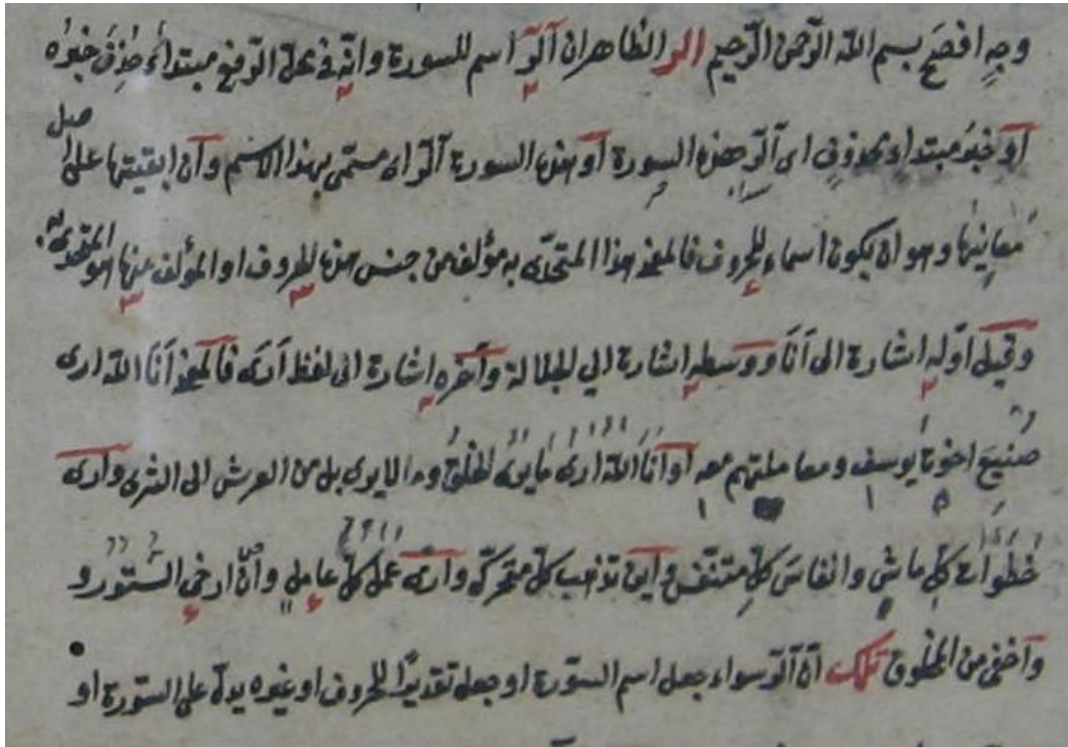 وجهٍ افصَح بسم الله الرّحمن الرّحيم الر الظاهر ان آلر اسم للسورة وانّه في محلّ الرّفع مبتداءٌ حُذِفَ خبرُه
او خبرُ مبتداءٍ محذوفٍ اى آلر هذه السورة او هذه السورة آلر اى مسمّى بهذا الاسم وان ابقيتها على اصل
معانيها وهو ان يكون اسماء للحروف فالمعنى هذا المتحدّى به مؤلف من جنس هذه الحروف او المؤلف منها هو المتحدى به
وقيل اوّله اشارة الى اَنَا ووسطه اشارة الي الجلالة وآخره اشارة الى لفظ اَرَى فالمعنى اَنَا الله ارى
صُنيعَ اخوة يوسف ومعاملتهم معه او انَا الله ارى مايرى الخلق وما لايرى بل من العرش الى الثرى وارى
خُطُوات كلّ ماشٍ وانفاسَ كلّ متنفّس واين تذهب كلّ متحركّ وارى عمل كلّ عاملٍ وان ارخي الستور و
واخفى من المخلوق تلك انّ آلر سواء جعل اسم السّورة او جعل تقديرًا للحروف او غيره يدلّ على السّورة او